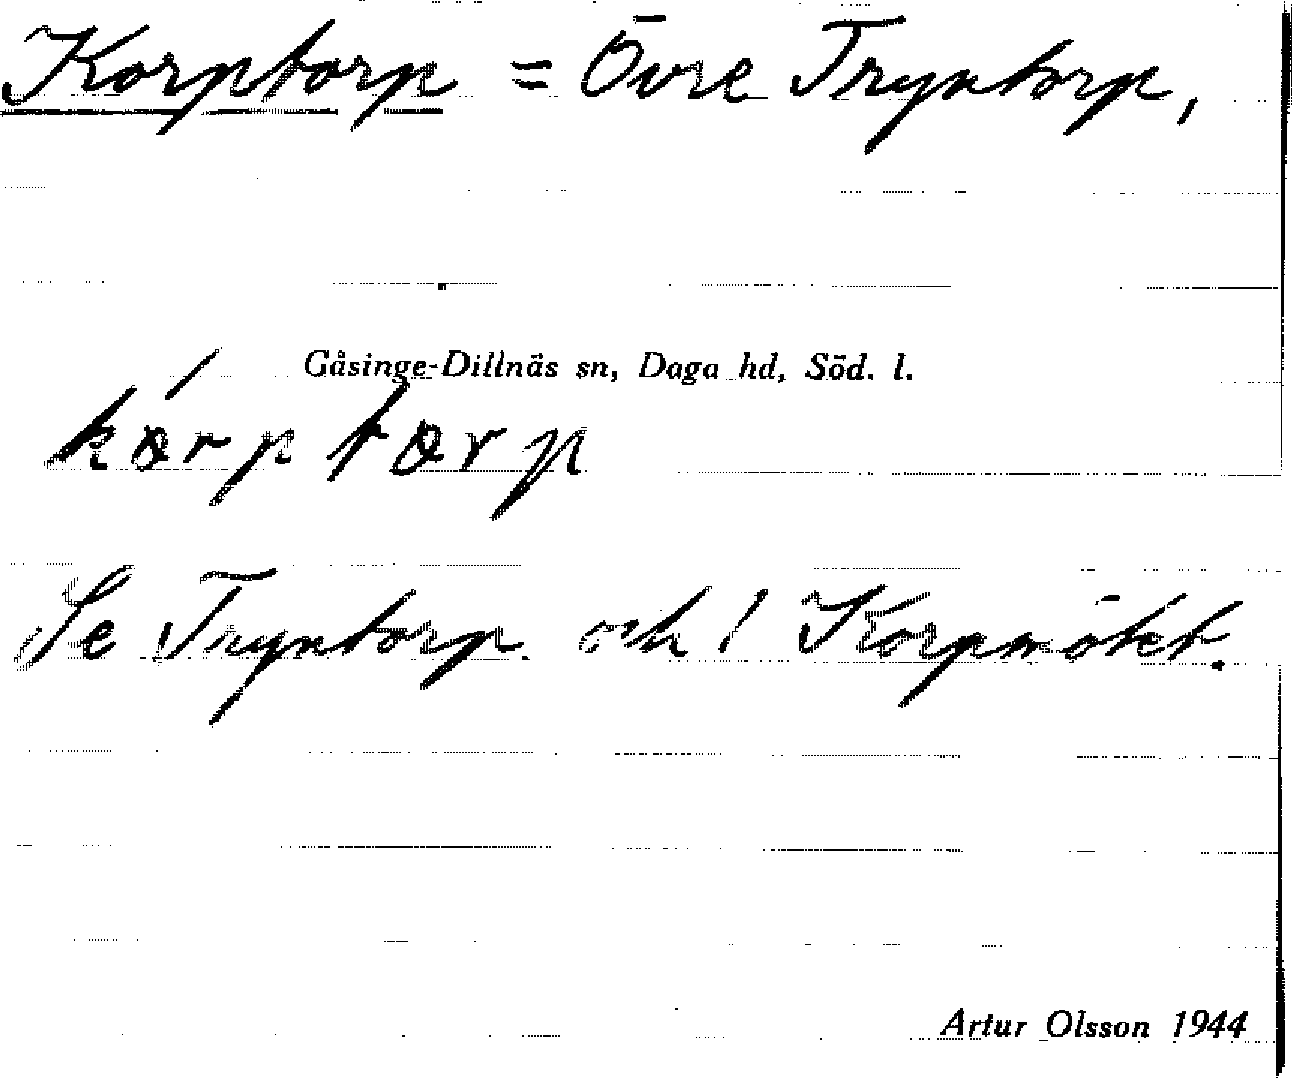 Korptorp = Övre Tryntorp,
Gåsinge-Dillnäs sn, Daga hd, Söd. l.
kårptårp
Se Tryntorp och 1 Korpmökt.
Artur Olsson 1944